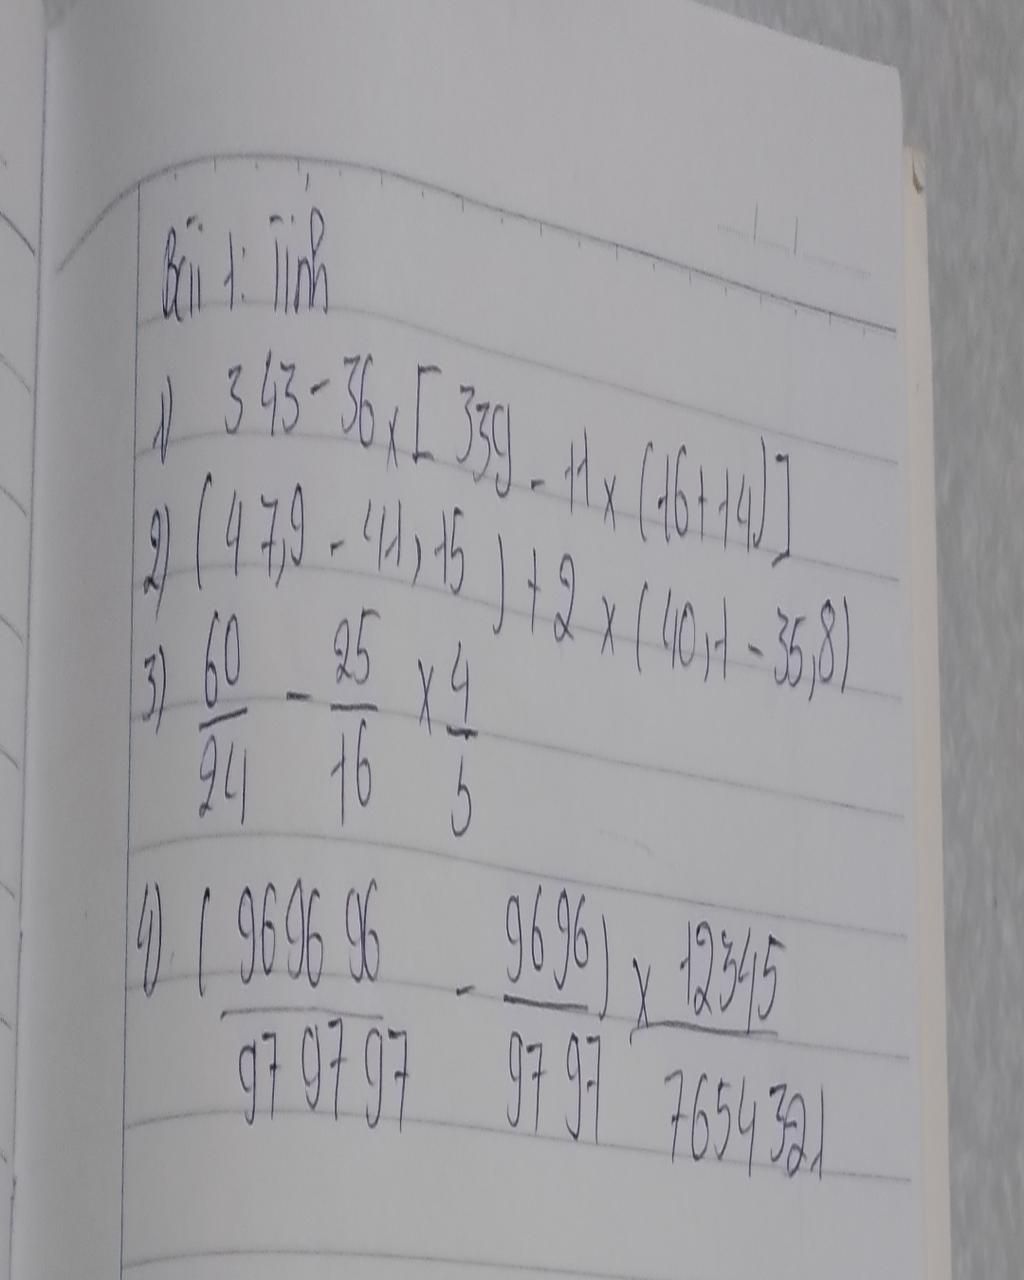 Bài 1: Tính
1) 343 - 36 x [ 339 - 11 x (16 + 14) ]
2) (47,9 - 41,15) + 2 x (40,1 - 35,8)
3) 60/24 - 25/16 x 4/5
4) (969696/979797 - 9696/9797) x 12345/7654321